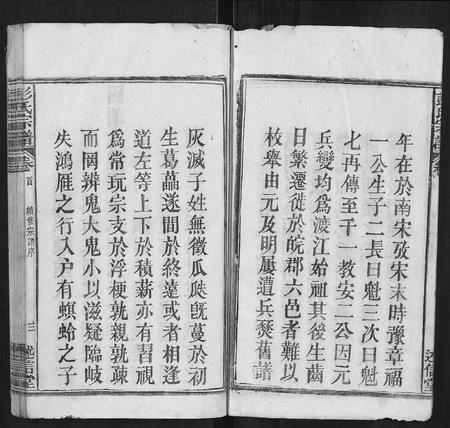 年在於南宋攷宋末時豫章福
一公生子二長曰魁三次曰魁
七再傳至千一教安二公因元
兵變均爲渡江始祖其後生齒
日繁遷徙於皖郡六邑者難以
枚舉由元及明屢遭兵燹舊譜
灰滅子姓無徵瓜瓞旣蔓於初
生葛藟遂間於終遠或者相逢
道左等上下於積薪亦有習視
爲常玩宗支於浮梗孰親孰疎
而罔辨鬼大鬼小以滋疑臨岐
失鴻雁之行入户有螟蛉之子
彭氏宗譜
卷首
續修宗譜序
三
述信堂
述信堂